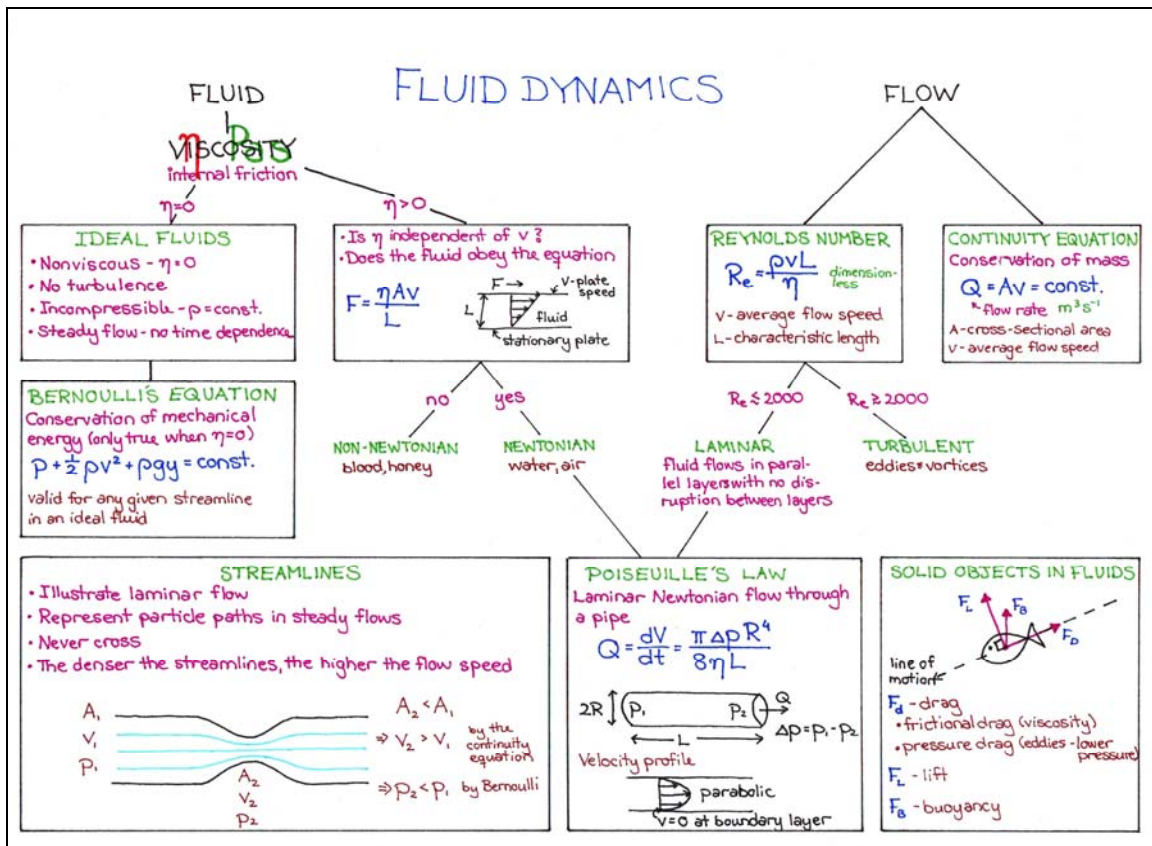 FLUID DYNAMICS
FLUID
VISCOSITY
η Pa s
internal friction
η=0
η>0
IDEAL FLUIDS
• Nonviscous - η=0
• No turbulence
• Incompressible - ρ=const.
• Steady flow - no time dependence
BERNOULLI'S EQUATION
Conservation of mechanical
energy (only true when η=0)
P + ½ ρv² + ρgy = const.
valid for any given streamline
in an ideal fluid
• Is η independent of v?
• Does the fluid obey the equation
F = ηAv/L
F →
v-plate
speed
L
fluid
stationary plate
no
yes
NON-NEWTONIAN
blood, honey
NEWTONIAN
water, air
FLOW
REYNOLDS NUMBER
Re = ρvL/η
dimension-
less
v - average flow speed
L - characteristic length
Re ≲ 2000
Re ≳ 2000
LAMINAR
fluid flows in paral-
lel layers with no dis-
ruption between layers
TURBULENT
eddies & vortices
CONTINUITY EQUATION
Conservation of mass
Q = Av = const.
flow rate m³s⁻¹
A - cross-sectional area
v - average flow speed
STREAMLINES
• Illustrate laminar flow
• Represent particle paths in steady flows
• Never cross
• The denser the streamlines, the higher the flow speed
A₁
v₁
p₁
A₂
v₂
p₂
A₂ < A₁
⇒ v₂ > v₁
by the
continuity
equation
⇒ p₂ < p₁ by Bernoulli
POISEUILLE'S LAW
Laminar Newtonian flow through
a pipe
Q = dV/dt = πΔpR⁴/8ηL
2R
p₁
p₂
Q
L
Δp = p₁ - p₂
Velocity profile
parabolic
v=0 at boundary layer
SOLID OBJECTS IN FLUIDS
F_L
F_B
F_D
line of
motion
F_d - drag
• frictional drag (viscosity)
• pressure drag (eddies - lower
pressure)
F_L - lift
F_B - buoyancy